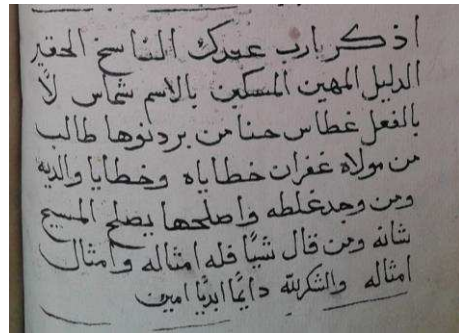 اذكر يارب عبدك الناسخ الحقير
الدليل المهين المسكين بالاسم شماس لا
بالفعل غطاس حنا من بردنوها طالب
من مولاه غفران خطاياه وخطايا والديه
ومن وجد غلطه واصلحها يصلح المسيح
شانه ومن قال شيًا فله امثاله وامثال
امثاله والشكر لله دايمًا ابديًا امين